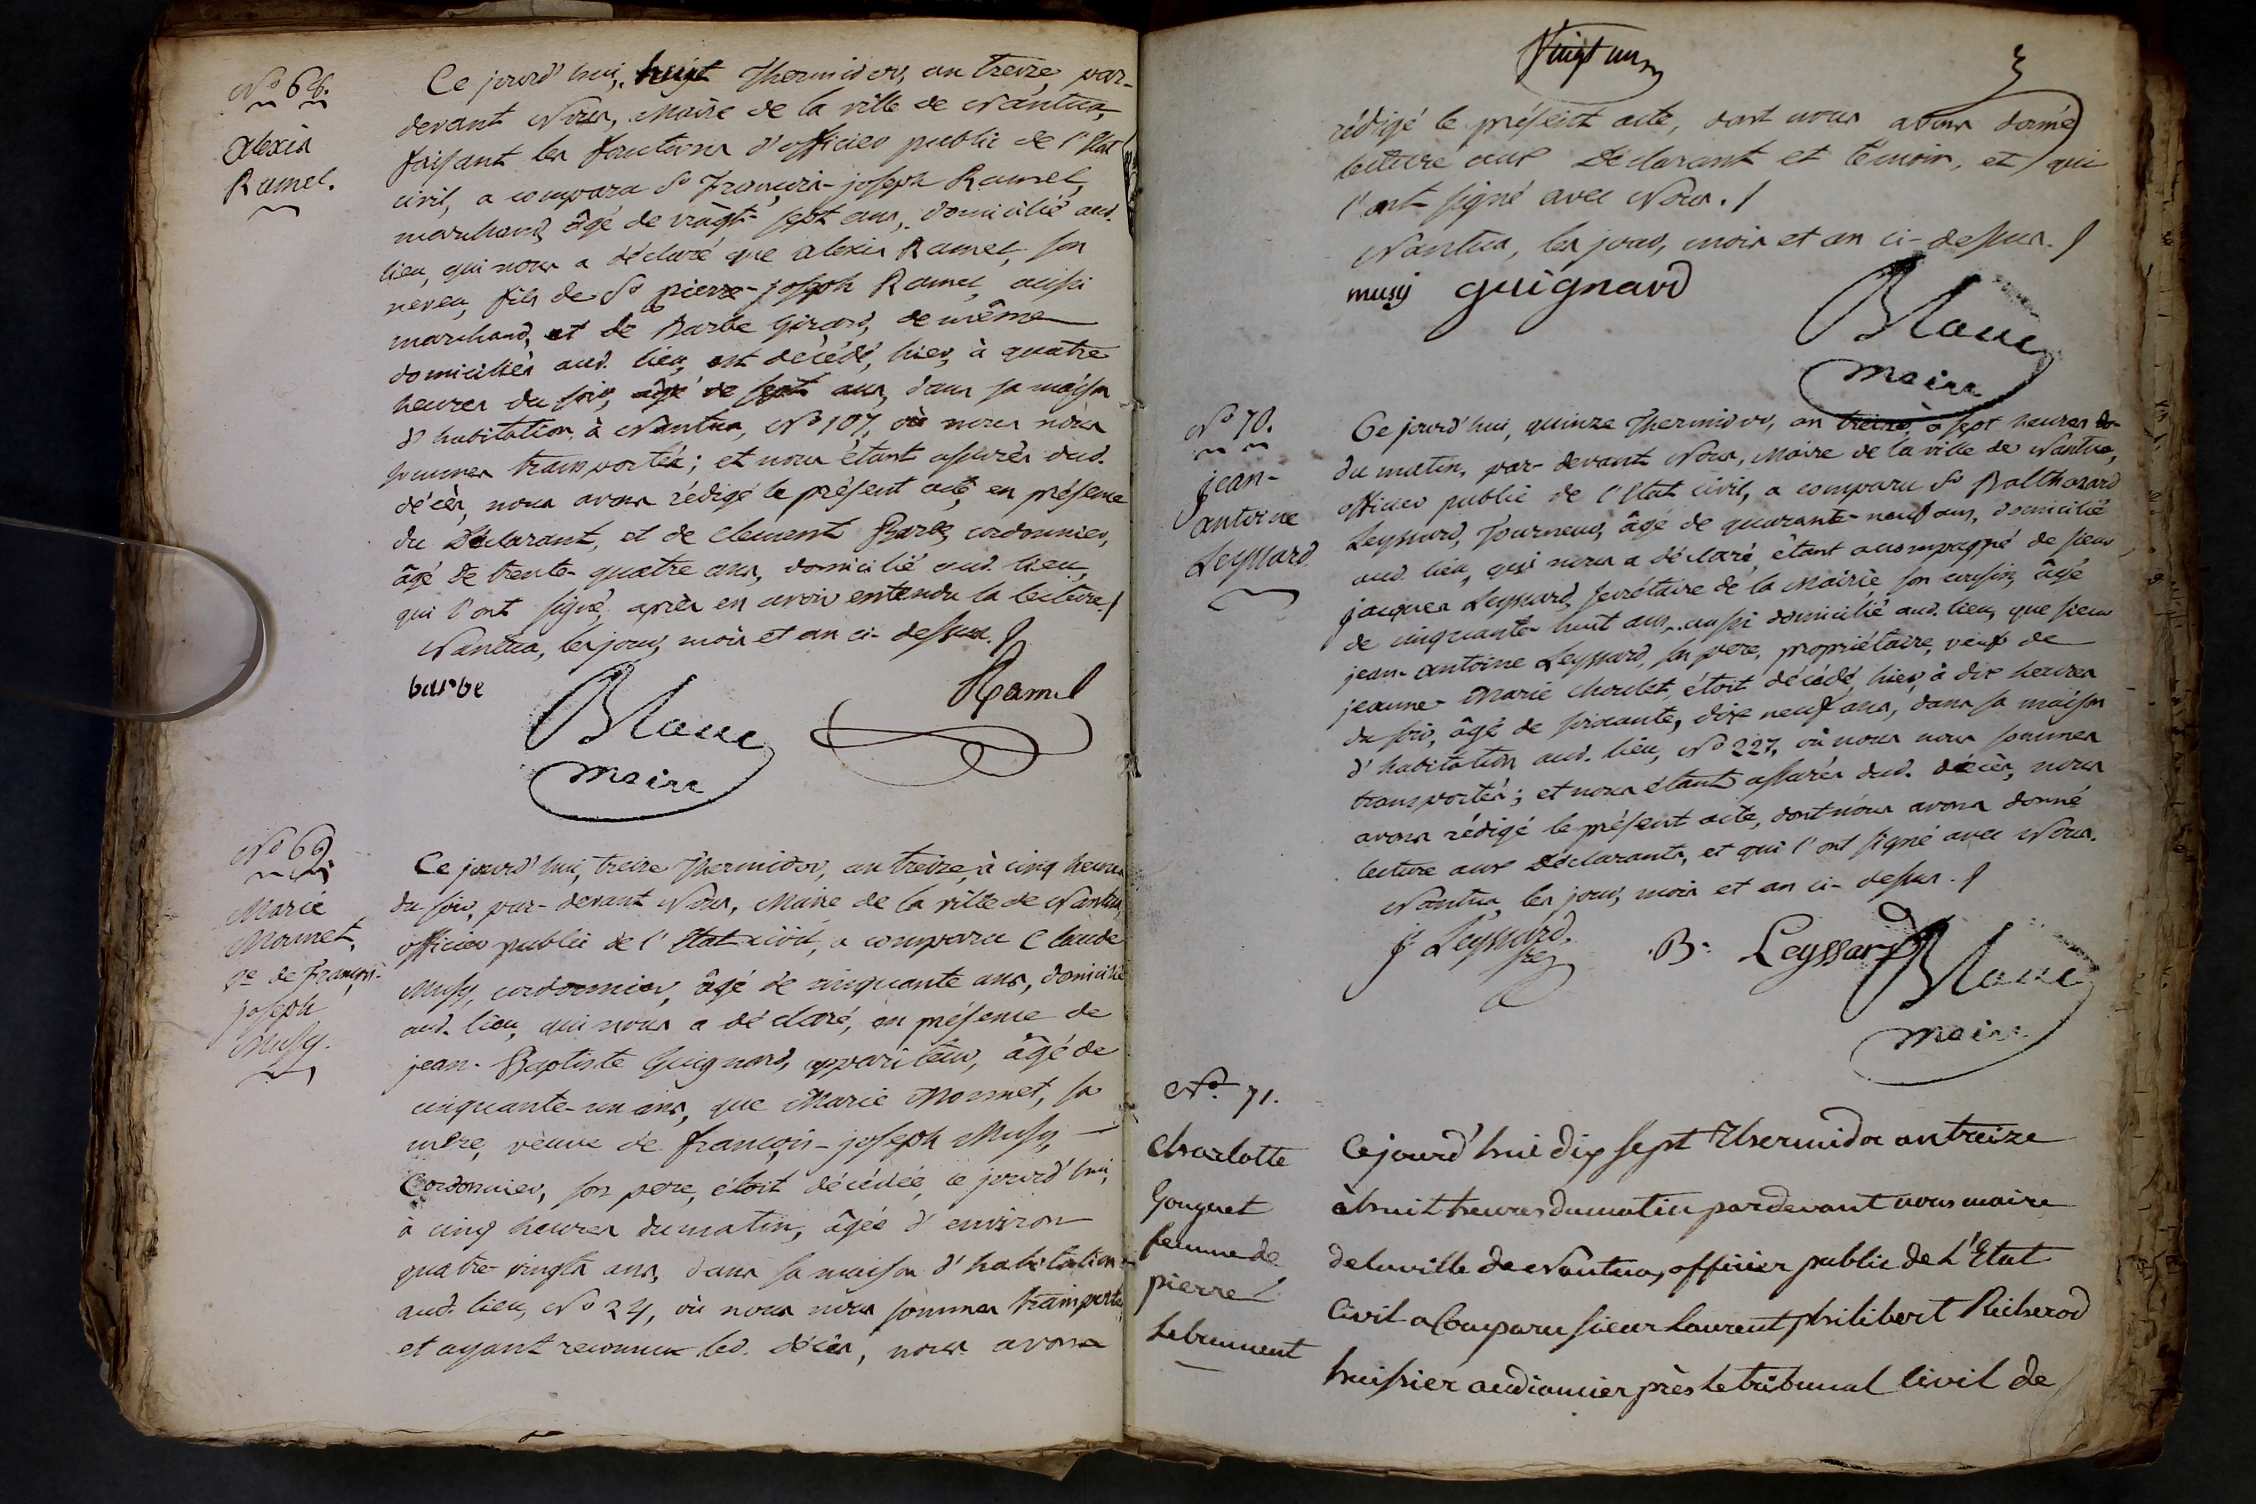 N.º 68.
alexis
Ramel.
Ce jourd'hui, huit Thermidor, an treize, par-
devant Nous, Maire de la ville de Nantua,
faisant les fonctions d'officier public de l'Etat
civil, a comparu Sr. François-joseph Ramel,
marchand, âgé de vingt-sept ans, domicilié aud.
lieu, qui nous a déclaré que alexis Ramel, son
neveu, fils de Sr. pierre-joseph Ramel, aussi
marchand, et de Barbe Girard, de même
domiciliés aud. lieu, est décédé, hier, à quatre
heures du soir, âgé de sept ans, dans sa maison
d'habitation, à Nantua, N.º 107, où nous nous
sommes transportés; et nous étant assurés dud.
décès, nous avons rédigé le présent acte, en présence
du Déclarant, et de clement Barbe, cordonnier,
âgé de trente-quatre ans, domicilié aud. lieu,
qui l'ont signé, après en avoir entendu la lecture./
Nantua, les jour, mois et an ci-dessus./
barbe
Blanc
maire
Ramel
N.º 69.
Marie
Mormet,
ve. de François-
joseph
Musy.
Ce jourd'hui, treize Thermidor, an treize, à cinq heures
du soir, par-devant Nous, Maire de la ville de Nantua,
officier public de l'Etat civil, a comparu Claude
Musy, cordonnier, âgé de cinquante ans, domicilié
aud. lieu, qui nous a déclaré, en présence de
jean-Baptiste Guignard, appariteur, âgé de
cinquante-un ans, que Marie Mormet, sa
mère, veuve de françois-joseph Musy,
Cordonnier, son pere, étoit décédée, ce jourd'hui,
à cinq heures du matin, âgée d'environ
quatre-vingts ans, dans sa maison d'habitation
aud. lieu, N.º 24, où nous nous sommes transportés
et ayant reconnu led. décès, nous avons
Vingt un
rédigé le présent acte, dont nous avons donné
lecture aux Déclarant et témoin, et qui
l'ont signé avec Nous./
Nantua, les jour, mois et an ci-dessus./
musy guignard
Blanc
maire
N.º 70.
jean-
antoine
Leyssard
Ce jourd'hui, quinze Thermidor, an treize, à sept heures
du matin, par-devant Nous, Maire de la ville de Nantua,
officier public de l'Etat civil, a comparu Sr. Balthazard
Leyssard, Tourneur, âgé de quarante-neuf ans, domicilié
aud. lieu, qui nous a déclaré, étant accompagné de sieur
jacques Leyssard, secrétaire de la Mairie, son cousin, âgé
de cinquante-huit ans, aussi domicilié aud. lieu, que sieur
jean-antoine Leyssard, son pere, propriétaire, veuf de
jeanne-Marie Choulet, étoit décédé, hier, à dix heures
du soir, âgé de soixante, dix neuf ans, dans sa maison
d'habitation aud. lieu, N.º 227, où nous nous sommes
transportés; et nous étant assurés dud. décès, nous
avons rédigé le présent acte, dont nous avons donné
lecture aux Déclarants, et qui l'ont signé avec Nous.
Nantua, les jour, mois et an ci-dessus./
J. Leyssard,
B. Leyssard
Blanc
maire
N.º 71.
Charlotte
Gouguet
femme de
pierre
Lebrument
Cejourd'hui dix sept Thermidor an treize
à huit heures du matin pardevant nous maire
de la ville de Nantua, officier public de L'Etat
Civil a Comparu sieur Laurent philibert Richerod
huissier audiancier près le tribunal Civil de